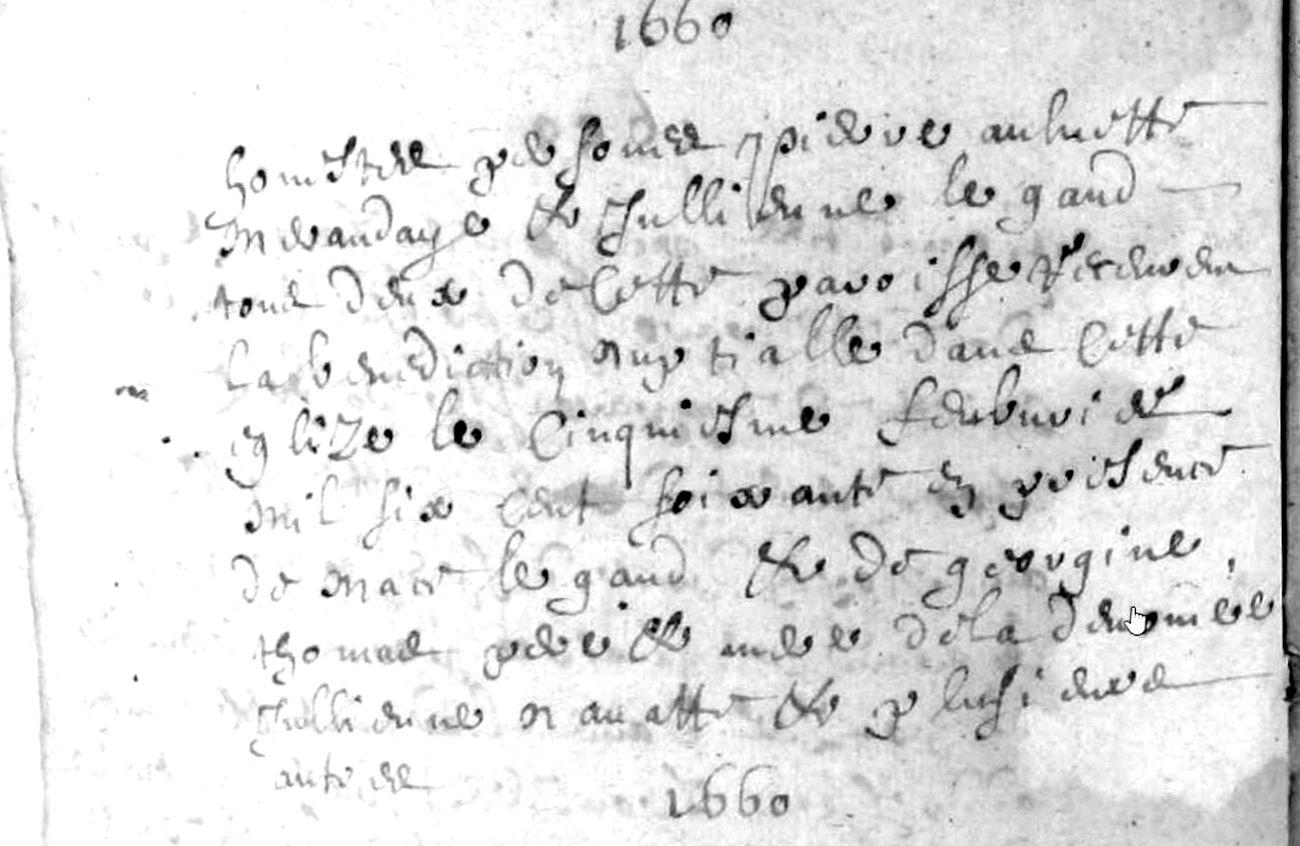 1660
honestes persones pierre auluette
Mesandaye & Jullienne le gaud
tous deux de Cette paroisse recewren
la benediction nuptialle dans Cette
eglize le Cinquiesme feubvrier
mil six cent soixante en presence
de mace le gaud & de georgine
thomas pere & mere de la denomee
Jullienne &  plusieurs
autres
1660